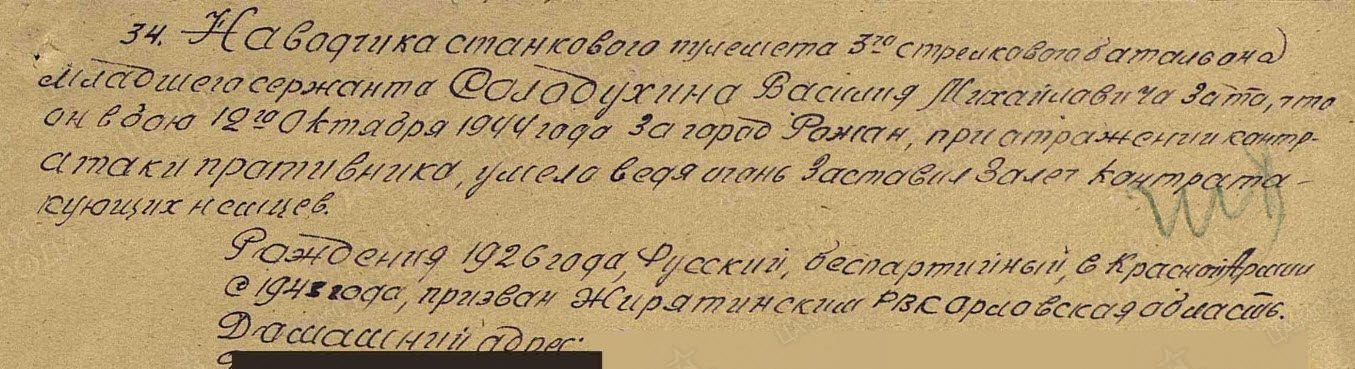 34. Наводчика станкового пулемета 3го стрелкового батальона
младшего сержанта Солодухина Василия Михайлавича за то, что
он в бою 12го Октября 1944 года за город Рожан, при отражении контр-
атаки противника, умело ведя огонь заставил залеч контрата-
кующих немцев.
Рождения 1926 года, Русский, беспартийный, в Красной Армии
с 1943 года, призван Жирятинским РВК Орловская область.
Домашний адрес: